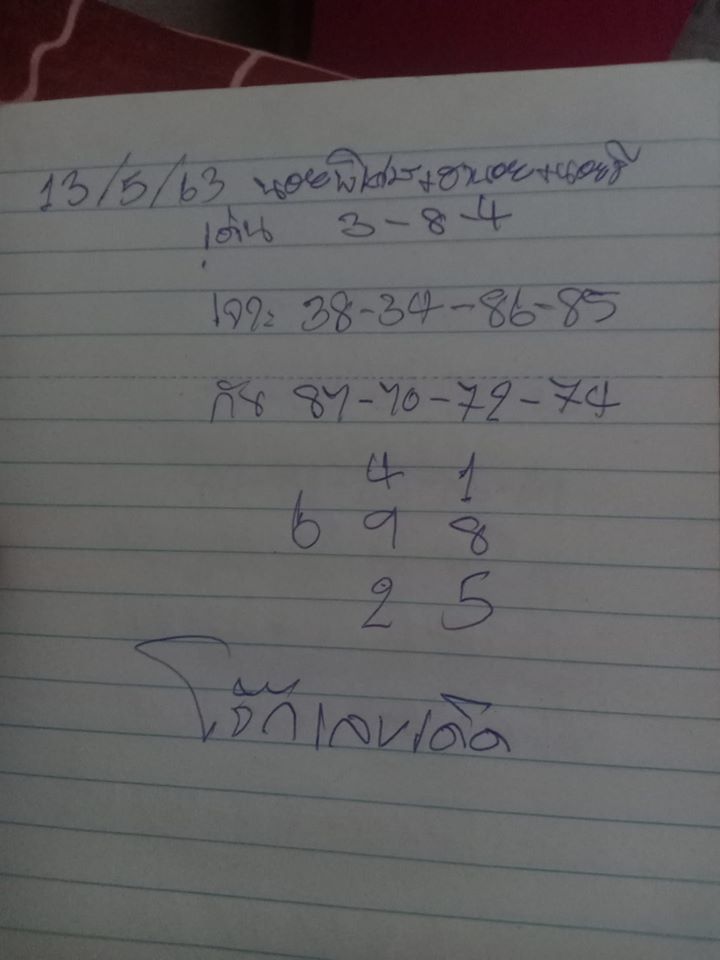 13/5/63 นอยพิเศษ+ฮานอย+นอยวี
เด่น 3-8-4
เจาะ 38-34-86-85
กัน 87-70-72-74
4 1
6 9 8
2 5
โจ๊กเลขเด็ด